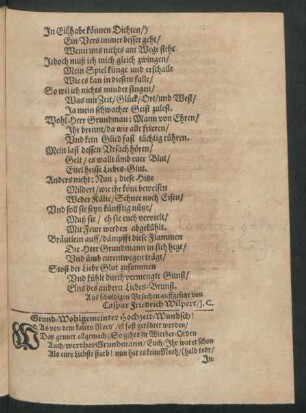 In Eil habe können Dichten/
Ein Vers immer besser geht/
Wenn uns nichts am Wege steht.
Jedoch muß ich mich gleich zwingen/
Mein Spiel klinge und erschalle
Wie es kan in diesem falle/
So wil ich nichts minder singen/
Was mir Zeit/ Glück/ Ort/ und West/
Ja mein schwacher Geist zuläst.
Wohl Herr Grundman: Mann von Ehren/
Ihr brennt/ da wie alle frieren/
Und kein Glied fast tüchtig rühren.
Mein last dessen Ursach hören/
Gelt/ es wallt ümb euer Blut/
Eitel heisse Liebes-Glut.
Anders nicht: Nun; diese Hitze
Mildert/ wie ihr könt beweisen
Weder Kälte/ Schnee noch Eisen/
Und soll sie seyn künfftig nütze/
Muß sie/ eh sie euch verzielt/
Mit Feuer werden abgekühlt.
Bräutlein auff/ dämpfft diese Flammen
Die Herr Grundmann in sich hegt/
Und ümb eurentwegen trägt;
Stost der Liebe Glut zusammen
Und kühlt durch vermengte Gunst/
Eins des andern Liebes-Brunst.
Aus schuldigen Ursachen auffgesetzt von
Caspar Friedrich Wilpert/ J. C.
Grund/ Wohlgemeinter Hochzeit/ Wundsch!
WAs von dem kalten Nord/ ist fast getödtet worden/
Das grünet allgemach; So gehts in Wiber-Orden
Auch/ werther Grundmann/ Euch/ Ihr waret schon
Als eure Liebste starb! nun hat es keine Noth/ (halb todt/
In,